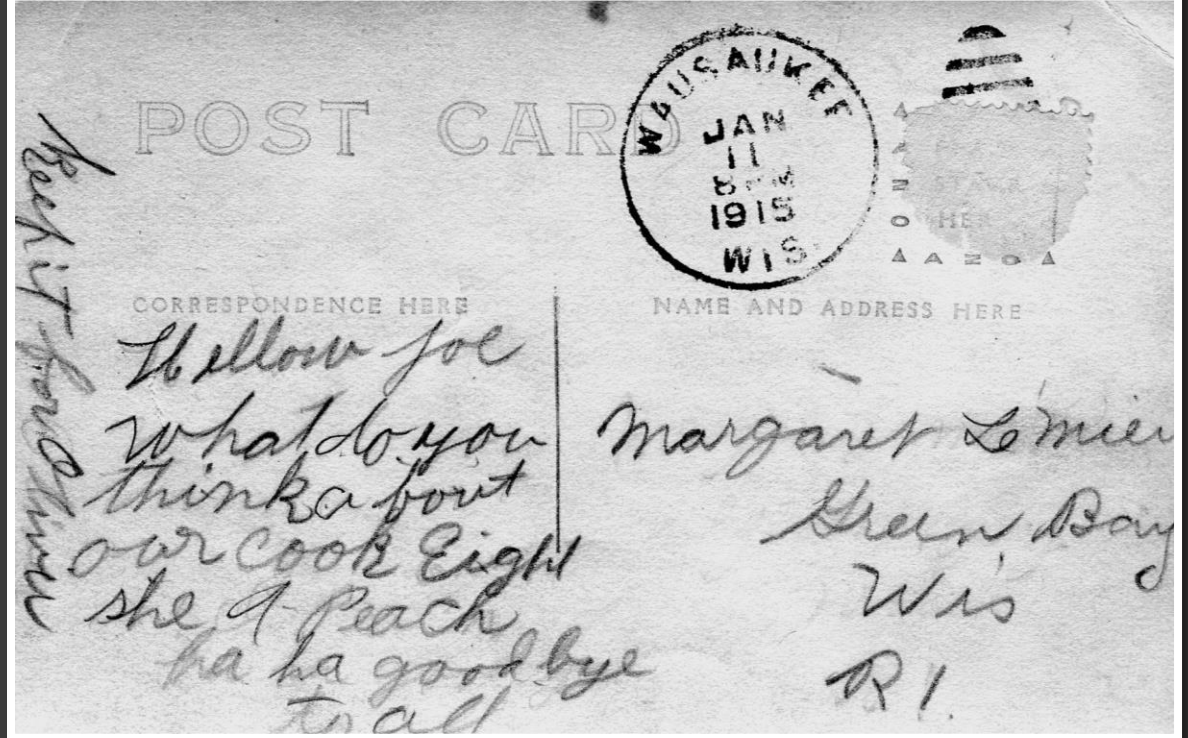 POST CARD
WAUSAUKEE
JAN
11
8 PM
1915
WIS.
AZO
STAMP
HERE
AZO
CORRESPONDENCE HERE
NAME AND ADDRESS HERE
Hellow Joe
what do you
think a bout
our cook Eight
she A Peach
ha ha good bye
to all
Keep it for
Margaret Le'mieu
Green Bay
Wis
R 1.